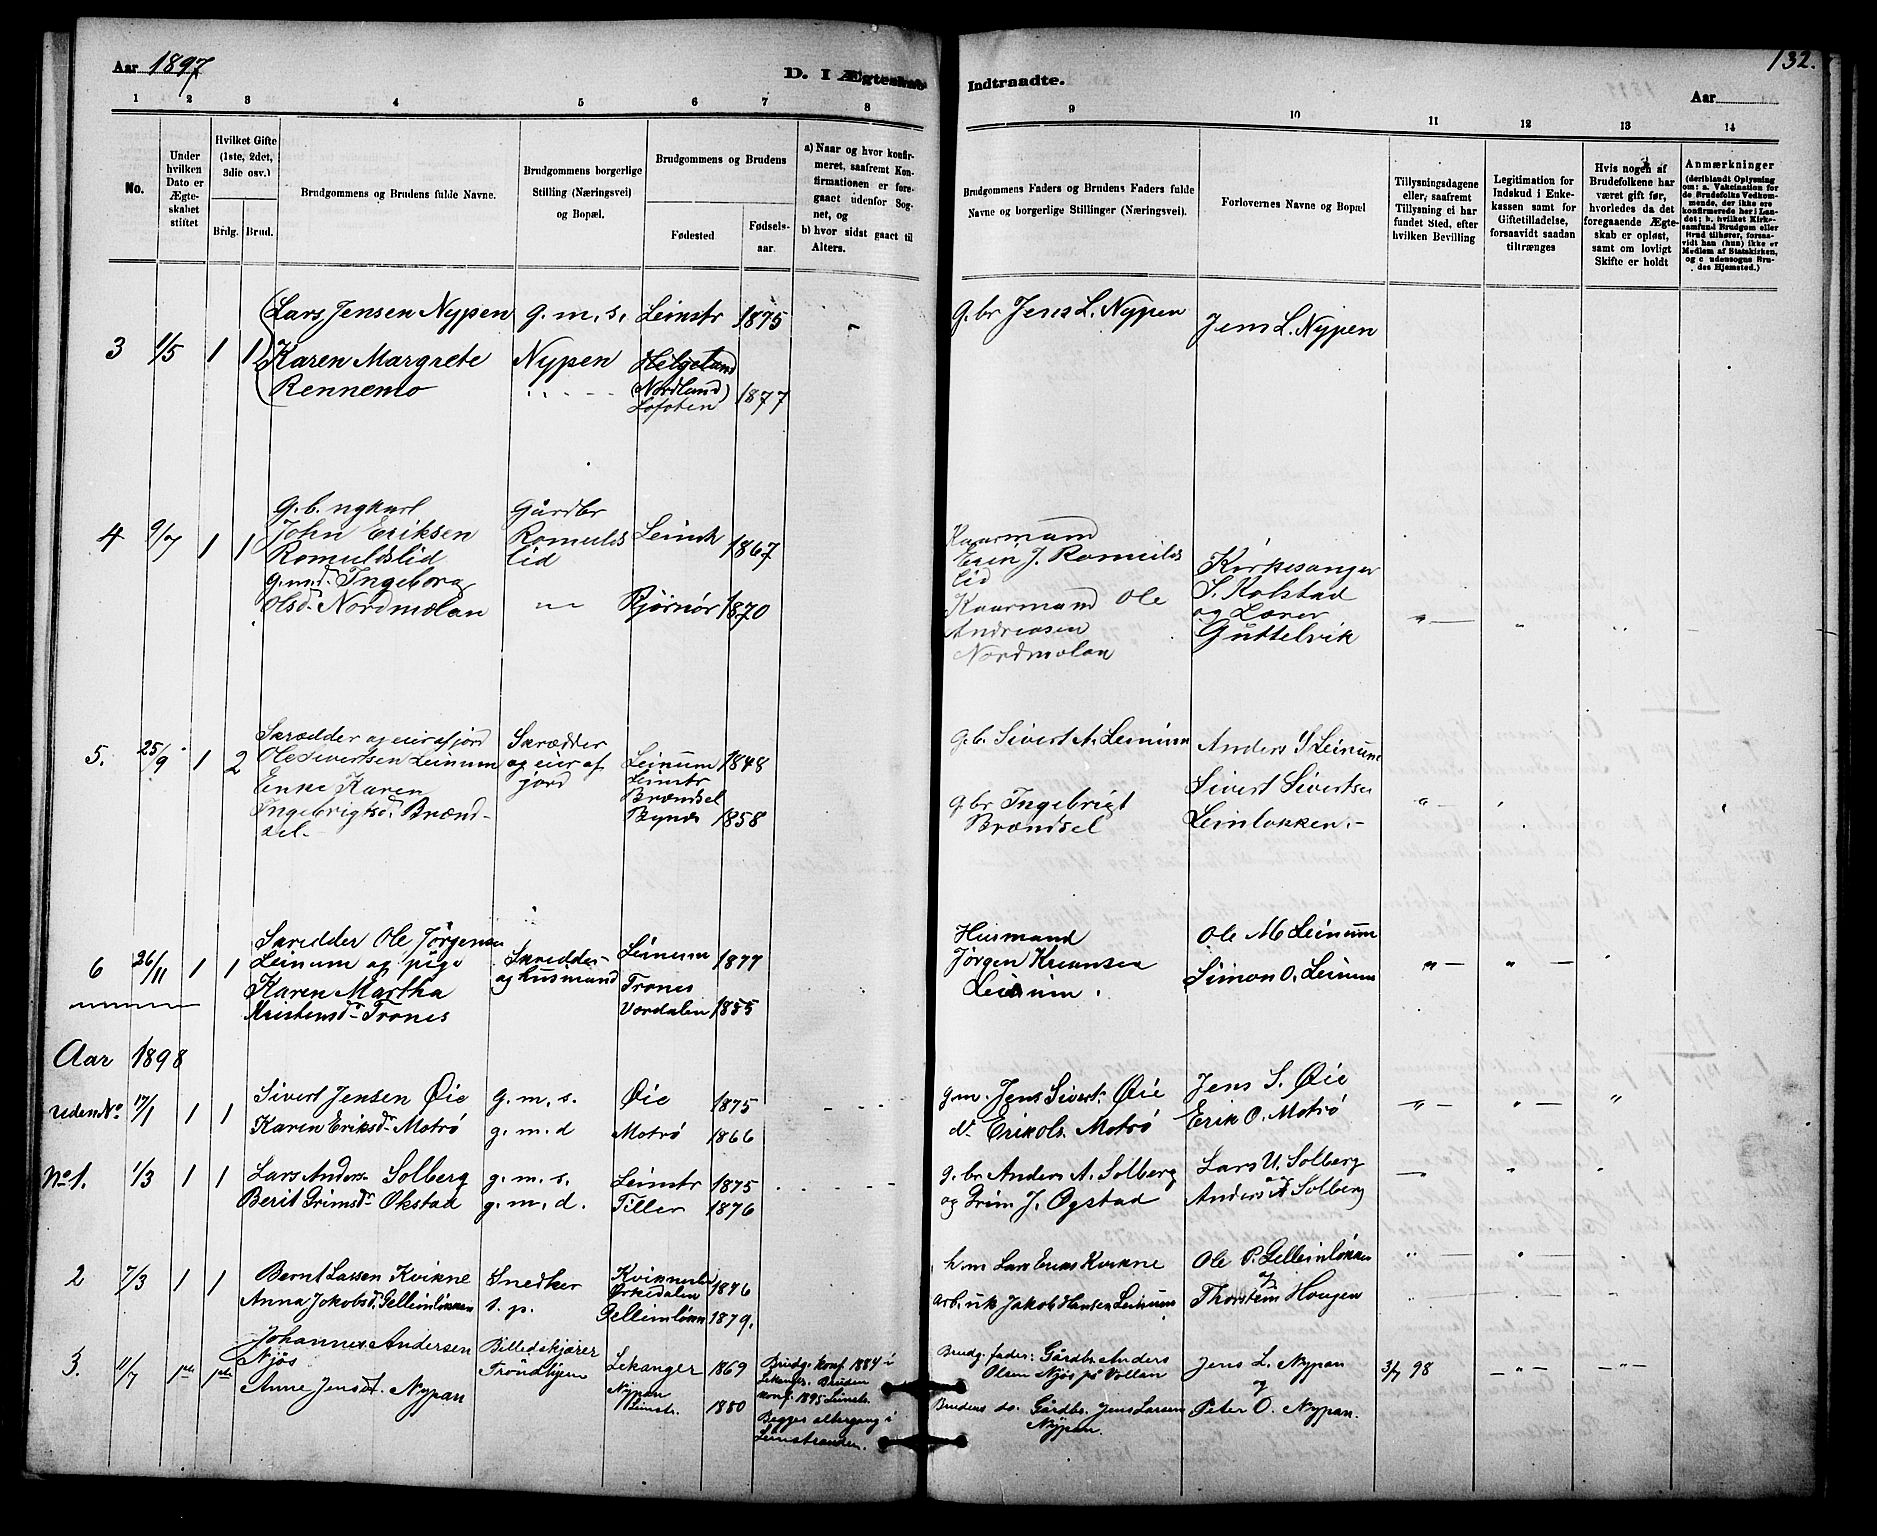 Aar 1897
D. I Ægteskab
Indtraadte.
132.
Aar
1 2 3 4 5 6 7 8 9 10 11 12 13 14
No.
Under
hvilken
Dato er
Ægte-
skabet
stiftet
Hvilket Gifte
(1ste, 2det,
3die osv.)
Brdg. Brud.
Brudgommens og Brudens fulde Navne.
Brudgommens borgerlige
Stilling (Næringsvei)
og Bopæl.
Brudgommens og Brudens
Fødested
Fødsels-
aar.
a) Naar og hvor konfir-
meret, saafremt Kon-
firmationen er fore-
gaaet udenfor Sog-
net, og
b) hvor sidst gaaet til
Alters.
Brudgommens Faders og Brudens Faders fulde
Navne og borgerlige Stillinger (Næringsvei).
Forlovernes Navne og Bopæl
Tillysningsdagene
eller, saafremt
Tillysning ei har
fundet Sted, efter
hvilken Bevilling
Legitimation for
Indskud i Enke-
kassen samt for
Giftetilladelse,
forsaavidt saadan
tiltrænges
Hvis nogen af
Brudefolkene har
været gift før,
hvorledes da det
foregaaende Ægte-
skab er opløst,
samt om lovligt
Skifte er holdt
Anmærkninger
(deriblandt Oplysning
om: a. Vakcination for
de Brudefolks Vedkom-
mende, der ikke ere
konfirmerede her i Lan-
det; b. hvilket Kirke-
samfund Brudgom eller
Brud tilhører, forsaa-
vidt han (hun) ikke er
Medlem af Statskirken,
og c. udensogns Bru-
des Hjemsted.)
3 1/5 1 1
Lars Jensen Nypen g. m. s. Leinstr 1875
Karen Margrete Nypen Helgeland
Rennemo (Nordland)
Lofoten 1877
g. br Jens L. Nypen
Jens L. Nypen
4 9/7 1 1
g. b. ngkarl Gårdbr
John Eriksen Romulds Leinstr 1867
Romuldslid lid
g. m. d. Ingeborg
Olsd. Nordmelan Bjørnør 1870
Kaarmand
Erik J. Romulds
lid
Kaarmand Ole
Andreasen
Nordmelan
Kirkesanger
S. Kolstad
og Lærer
Guttelvik
5. 25/9 1 2
Skrædder og eier af jord Skrædder
Ole Sivertsen Leinum og eier af Leinum 1848
Enke Karen jord Leinstr
Ingebrigtsd. Brænd- Brændsel
sel. Bynes 1858
g. b. Sivert A. Leinum
g. br Ingebrigt
Brændsel
Anders S Leinum
Sivert Sivertse
Leinløkken.
6 26/11 1 1
Skredder Ole Jørgensen Skredder
Leinum og pige og husmand Leinum 1877
Karen Martha Trones
Kristensd. Trones Værdalen 1855
Husmand
Jørgen
Leinum.
Ole M Leinum
Simon O. Leinum
Aar 1898
Uden No. 17/1 1 1
Sivert Jensen Øie g. m. s. Øie 1875
Karen Eriksd. Motrö g. m. d Motrö 1866
g. m. Jens Sivert. Øie Jens S. Øie
d. Erik Ols. Motrö Erik O. Motrö
No 1. 1/3 1 1
Lars Anders. Solberg g. m. s. Leinstr 1875
Berit Grimsd. Økstad g. m. d. Tiller 1876
g. br Anders A. Solberg Lars A. Solberg
og Grim J. Øgstad Anders A Solberg
2 7/3 1 1
Bernt Larsen Kvikne Snedker Kvikne 1876
Ørkedalen
Anna Jakobsd. Gelleinløkken s. p. Gelleinløkn 1879.
h. m Lars Kvikne Ole P. Gelleinløkken
og
arb. Jakob Hansen Leinum Thorstein Hougen
3. 11/7 1ste 1ste
Johannes Andersen Billedskjærer
Njøs Trondhjem Lekanger 1869
Anne Jensd. Nypan Nypan
Leinstr. 1880
Brudg. konf. 1884 i
Lekanger. Bruden
konf. 1895 Leinstr.
Begges altergang i
Leinstranden.
Brudg. fader: Gårdbr. Anders
Olsen Njøs på Vollan
Brudens do. Gårdbr. Jens Larsen
Nypan.
Jens L. Nypan
og
Peter O. Nypan.
3/7 98